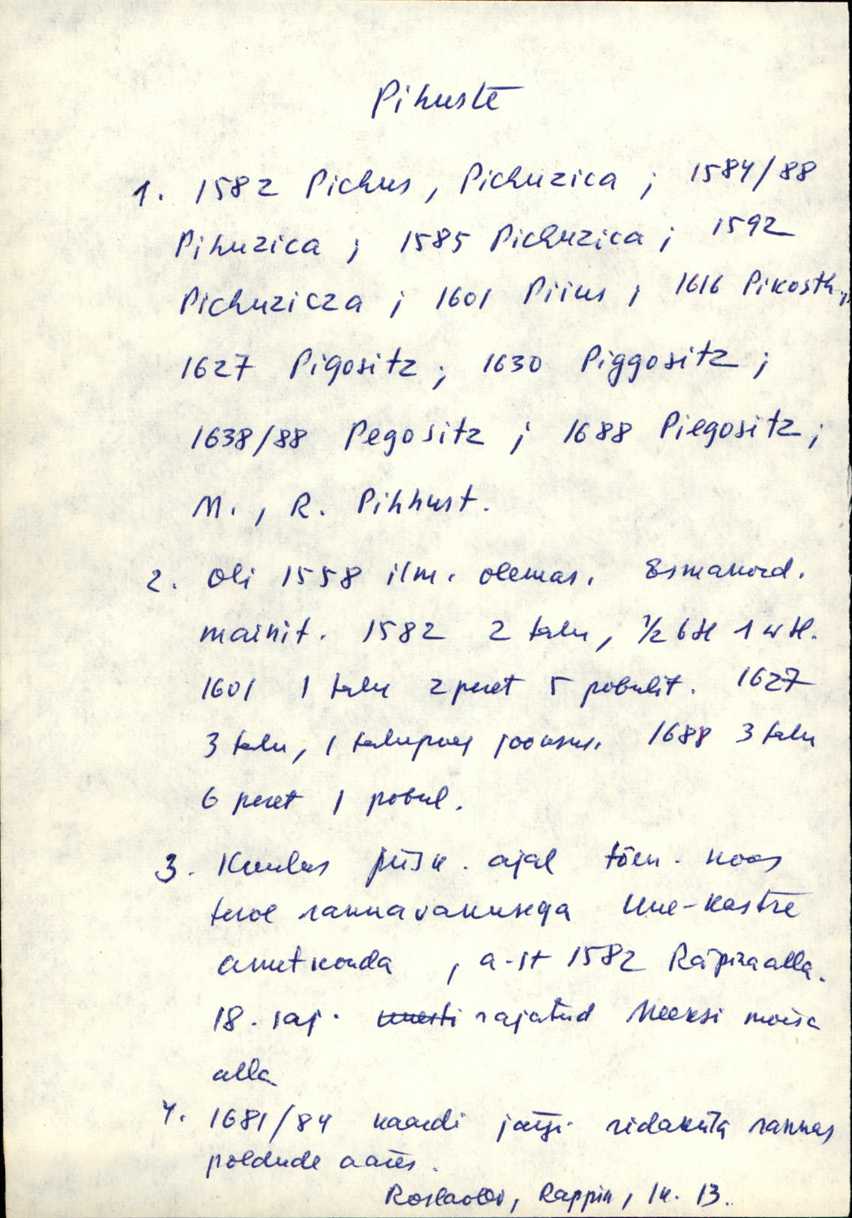 Pihuste
1. 1582 Pichus, Pichuzica; 1584/88
Pihuzica; 1585 Pichuzica; 1592
Pichuzicza; 1601 Piius; 1616 Pikosth;
1627 Pigositz; 1630 Piggositz;
1638/88 Pegositz; 1688 Piegositz;
M., R. Pihhust.
2. Oli 1558 ilm. olemas. Esmakord.
mainit. 1582 2 talu, 1/2 bH 1 wH.
1601 1 talu 2 peret 5 pobulit. 1627
3 talu, 1 talupoeg jooksus. 1688 3 talu
6 peret 1 pobul.
3. Kuulus piisk. ajal tõen. koos
terve rannavakusega Uue-Kastre
ametkonda, a-st 1582 Räpina alla.
18. saj. uuesti rajatud Meeksi mõisa
alla
4. 1681/84 kaardi järgi ridaküla rannas
põldude ääres.
Roslavlev, Rappin, lk. 13.